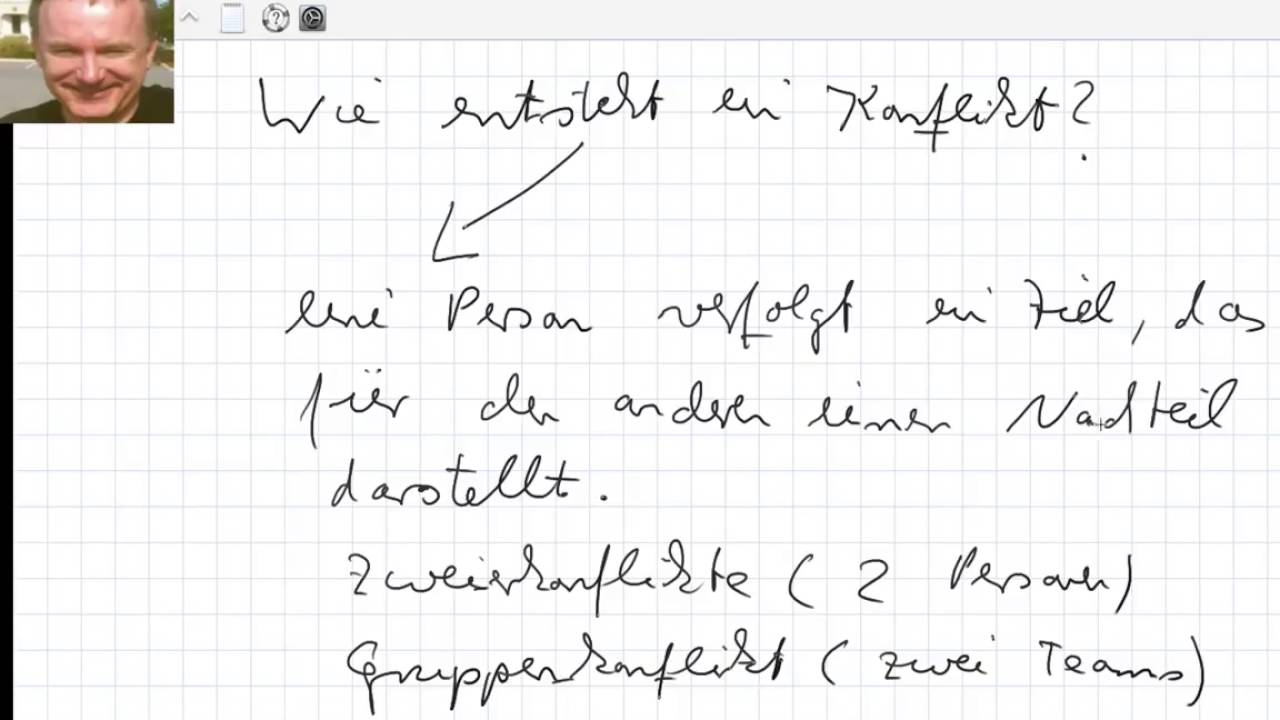 Wie entsteht ein Konflikt?
eine Person verfolgt ein Ziel, das
für den anderen einen Nachteil
darstellt.
Zweierkonflikte (2 Personen)
Gruppenkonflikt (zwei Teams)